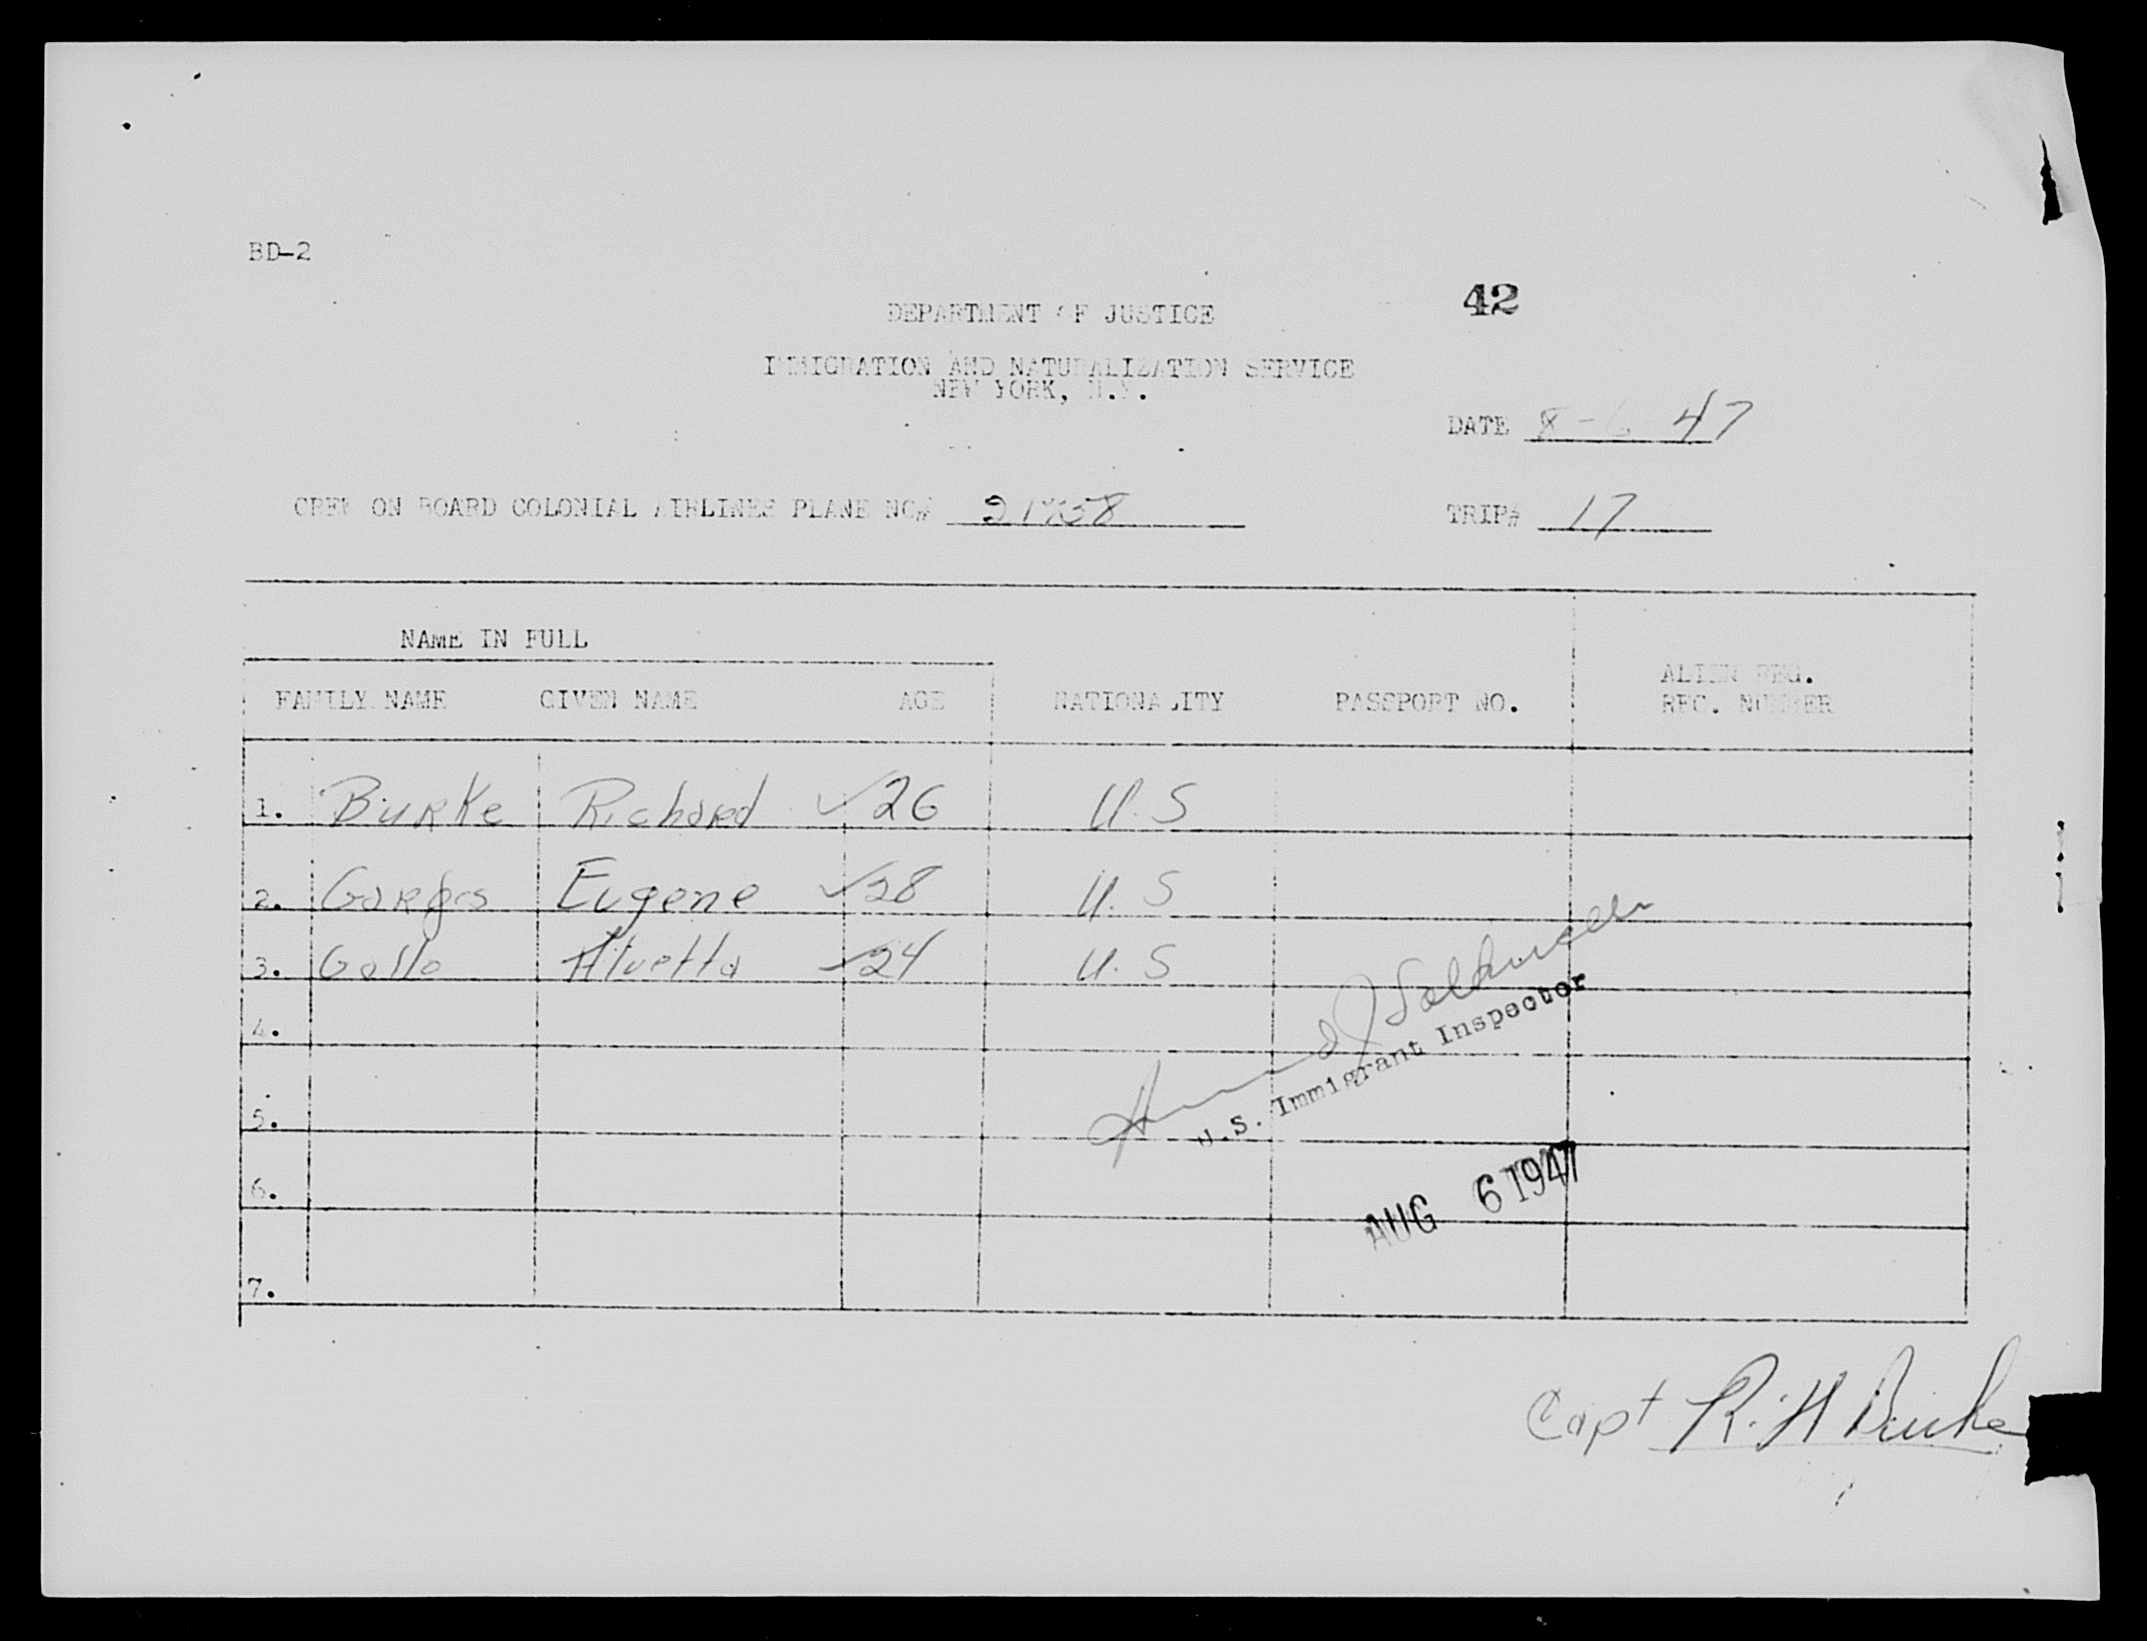 BD-2
42
DEPARTMENT OF JUSTICE
IMMIGRATION AND NATURALIZATION SERVICE
NEW YORK, N.Y.
DATE 8-6 47
CREW ON BOARD COLONIAL AIRLINES PLANE NC#
TRIP# 17
NAME IN FULL
FAMILY NAME GIVEN NAME AGE NATIONALITY PASSPORT NO. ALIEN REG. REC. NUMBER
1. Burke Richard ✓26 U.S
2. Eugene ✓28 U.S
3. Gallo ✓24 U.S
4.
5.
6.
7.
U.S. Immigrant Inspector
AUG 6 1947
Capt R.H Burke